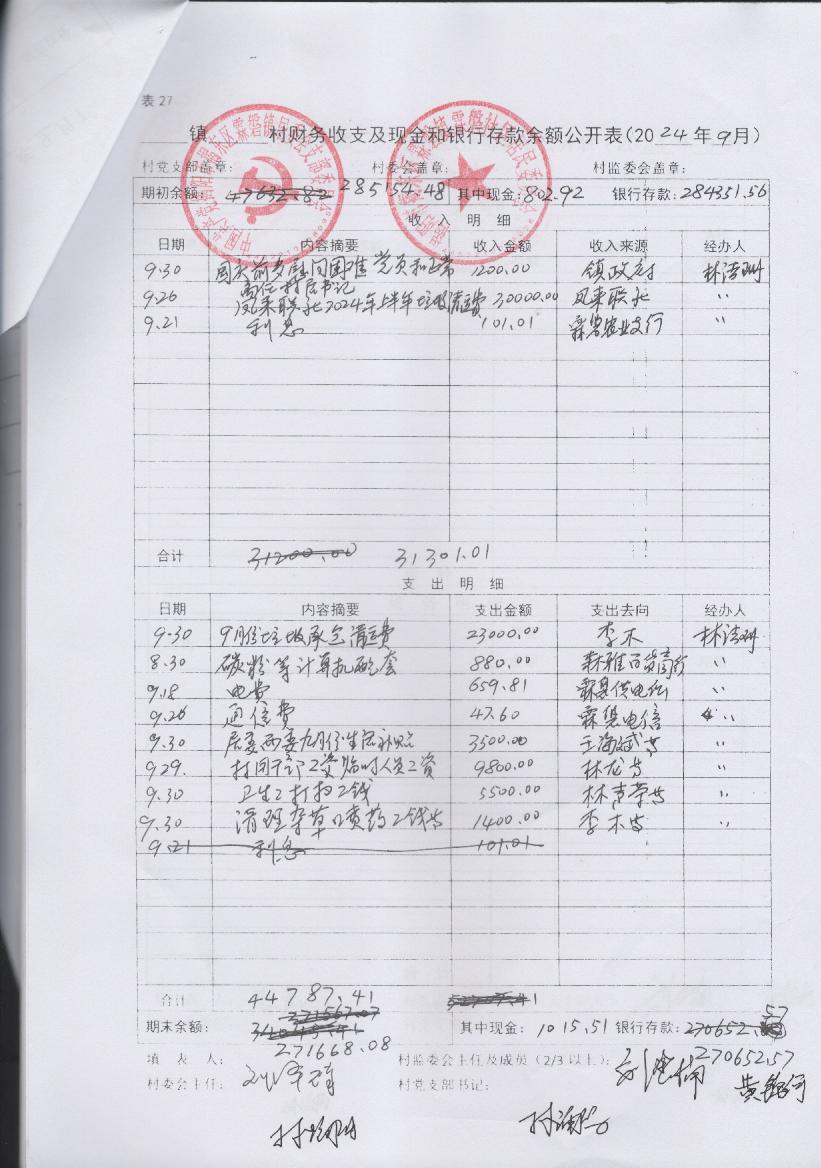 表 27
镇 村财务收支及现金和银行存款余额公开表(2024年9月)
村党支部盖章: 村委会盖章: 村监委会盖章:
期初余额: 47632.82 285154.48 其中现金:802.92 银行存款:284351.56
收 入 明 细
日期 内容摘要 收入金额 收入来源 经办人
9.30 国庆前夕慰问困难党员和正常 1200.00 镇政府
离任村居书记
9.26 2024年上半年垃圾清运费 30000.00 〃
9.21 利息 101.01 霖磐农业支行 〃
合计 31200.00 31301.01
支 出 明 细
日期 内容摘要 支出金额 支出去向 经办人
9.30 9月份垃圾承包清运费 23000.00 李木
8.30 碳粉等计算机配套 880.00 〃
9.18 电费 659.81 霖磐供电所 〃
9.26 通信费 47.60 霖磐电信 〃
9.30 居委两委九月份生活补贴 3500.00 〃
9.29. 工资临时人员工资 9800.00 林龙等 〃
9.30 卫生工打扫工钱 5500.00 〃
9.30 清理杂草喷药工钱等 1400.00 李木等 〃
9.21 利息 101.01
合计 44787.41
期末余额: 271668.08 其中现金: 1015.51 银行存款: 270652.57
填 表 人: 村监委会主任及成员(2/3 以上): 270652.57
村委会主任: 村党支部书记: